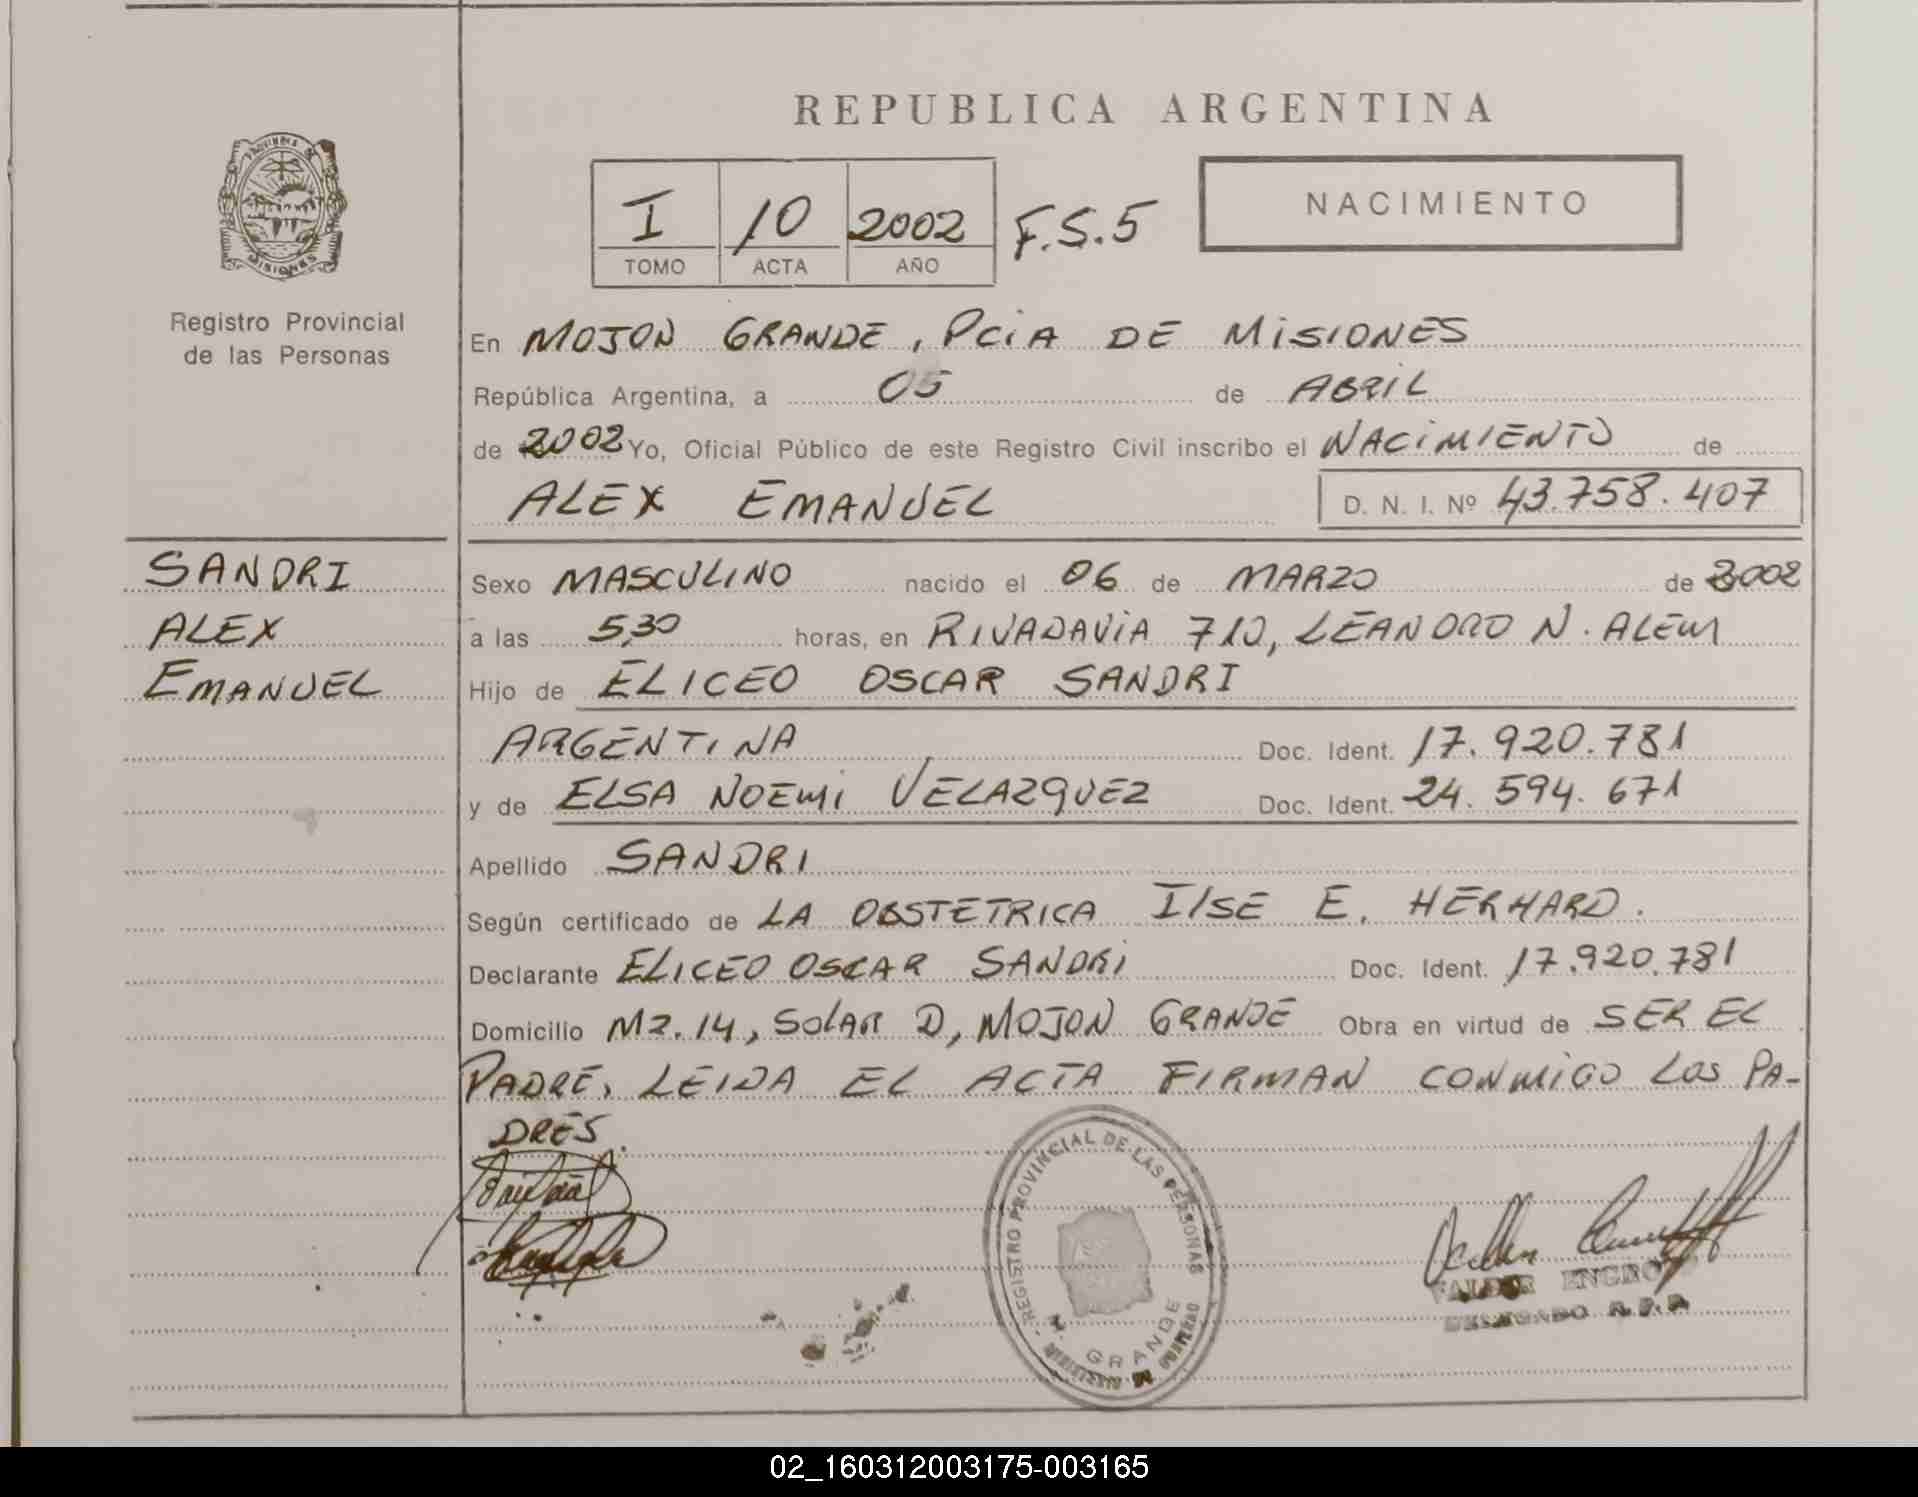 REPUBLICA ARGENTINA
PROVINCIA DE
MISIONES
Registro Provincial
de las Personas
I 10 2002 F.S.5
TOMO ACTA AÑO
NACIMIENTO
En MOJON GRANDE, PCiA DE MiSIONES
República Argentina, a 05 de ABRIL
de 2002 Yo, Oficial Público de este Registro Civil inscribo el NACiMIENTO de
ALEX EMANUEL D. N. I. Nº 43.758.407
SANDRI
ALEX
EMANUEL
Sexo MASCULINO nacido el 06 de MARZO de 2002
a las 5,30 horas, en RIVADAVIA 710, LEANDRO N. ALEM
Hijo de ELICEO OSCAR SANDRI
ARGENTINA Doc. Ident. 17.920.781
y de ELSA NOEMi VELAZQUEZ Doc. Ident. 24.594.671
Apellido SANDRI
Según certificado de LA OBSTETRICA IlSE E. HERHARD.
Declarante ELICEO OSCAR SANDRI Doc. Ident. 17.920.781
Domicilio MZ.14, SOLAR D, MOJON GRANDE Obra en virtud de SER EL
PADRE, LEIDA EL ACTA FIRMAN CONMIGO LOS PA-
DRES.
REGISTRO PROVINCIAL DE LAS PERSONAS
GRANDE
DELEGADO R.P.P.
02_160312003175-003165